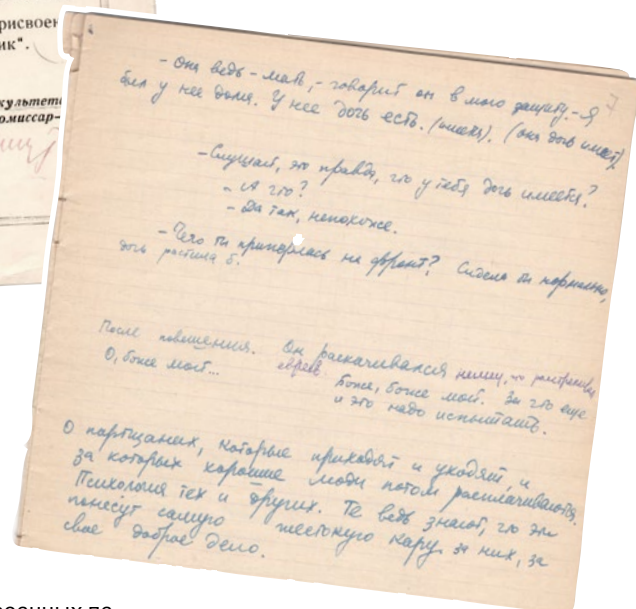 рисвоен
ик".
культета
омиссар-
7
- Она ведь - мать, - говорит он в мою защиту. - Я
был у нее дома. У нее дочь есть. (она дочь имеет).
- Слушай, это правда, что у тебя дочь имеется?
- А что?
- Да так, непохоже.
- Чего ты приперлась на фронт? Сидела бы нормально,
дочь растила б.
После повешения. Он раскачивался
еврей
О, боже мой...
Боже, боже мой. За что еще
и это надо испытать.
О партизанах, которые приходят и уходят, и
за которых хорошие люди потом расплачиваются.
Психология тех и других. Те ведь знают, что эти
понесут самую жестокую кару за них, за
свое доброе дело.